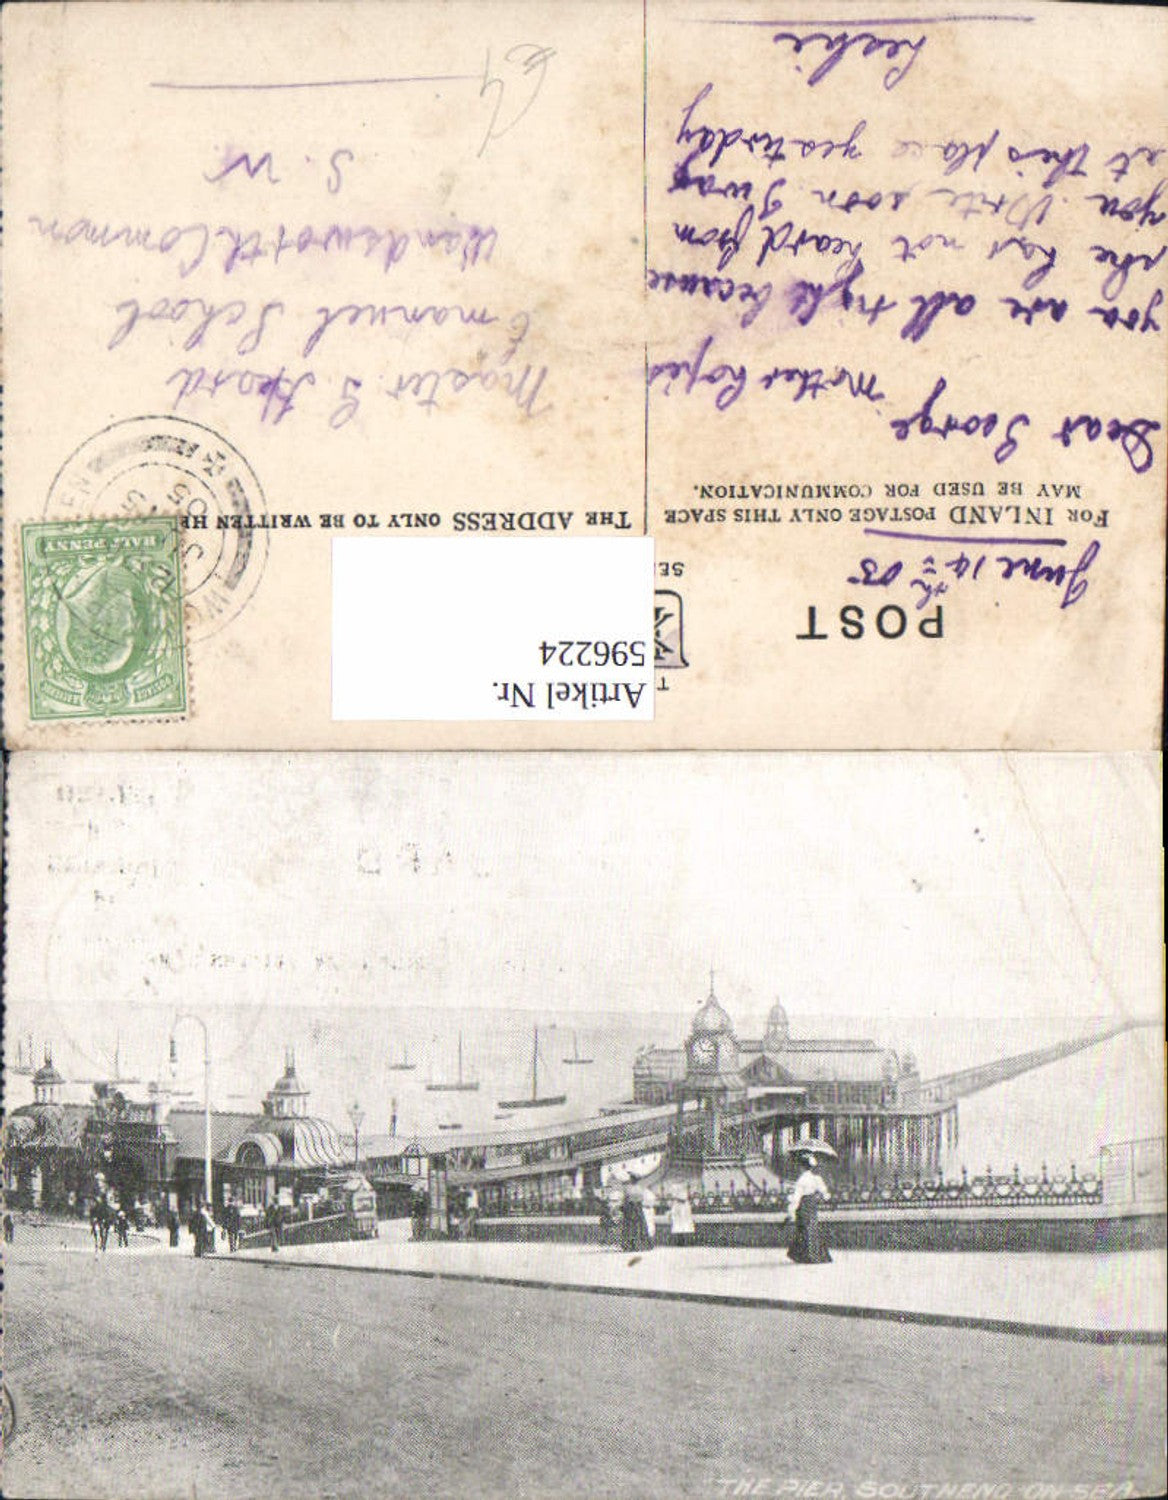 POST
June 14th 05
FOR INLAND POSTAGE ONLY THIS SPACE
MAY BE USED FOR COMMUNICATION.
THE ADDRESS ONLY TO BE WRITTEN HE
Dear George
Mother hopes
you are all right because
she has not heard from
you. Write soon. I was
at this place yeasturday
Leslie
Master G. Heard
Emanuel School
Wandsworth Common
S. W.
HALF PENNY
Artikel Nr.
596224
THE PIER, SOUTHEND-ON-SEA